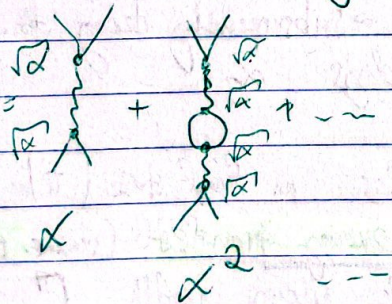 √α √α
= + √α + ---
√α √α
√α
α α² ---